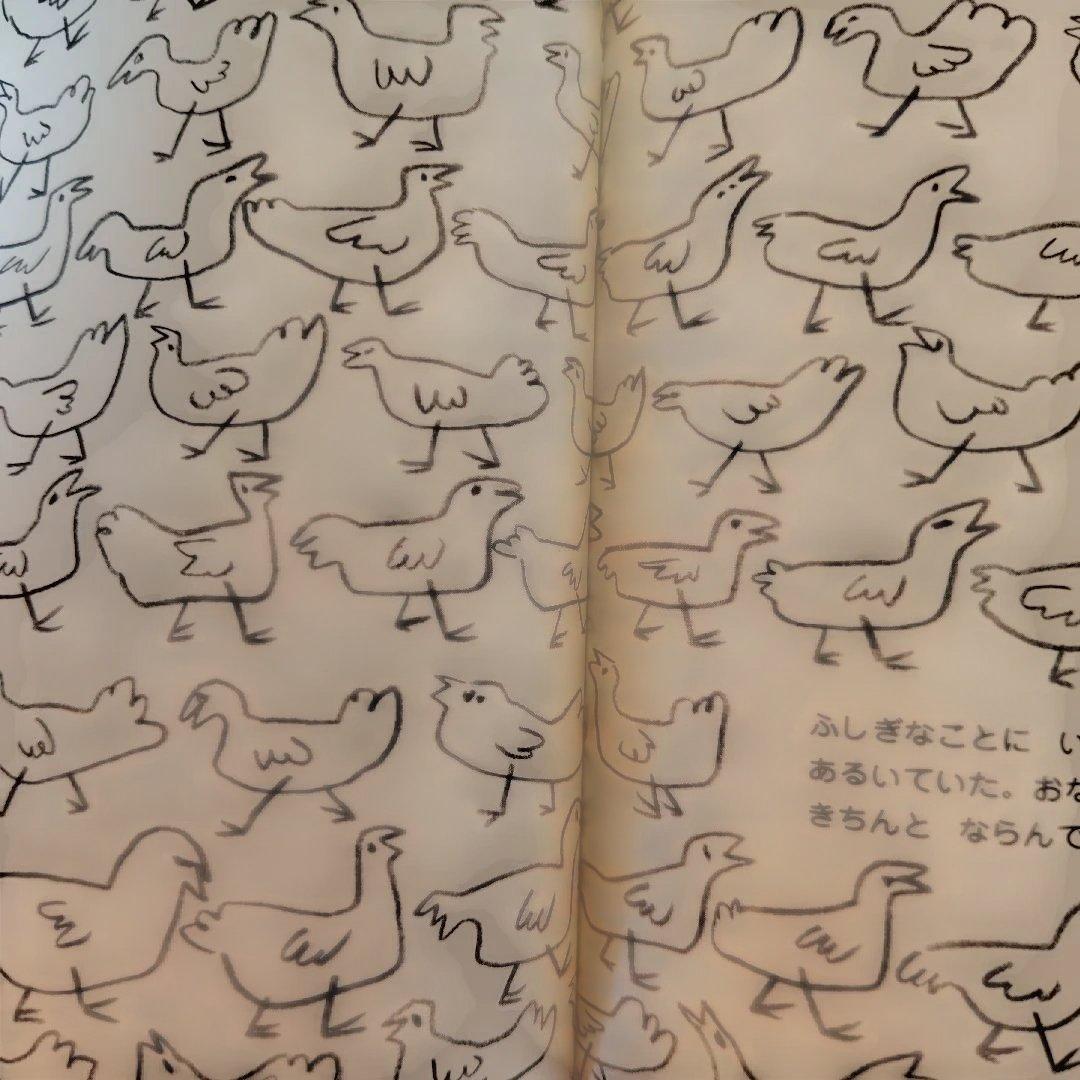 ふしぎなことに い
あるいていた。おな
きちんと ならんで